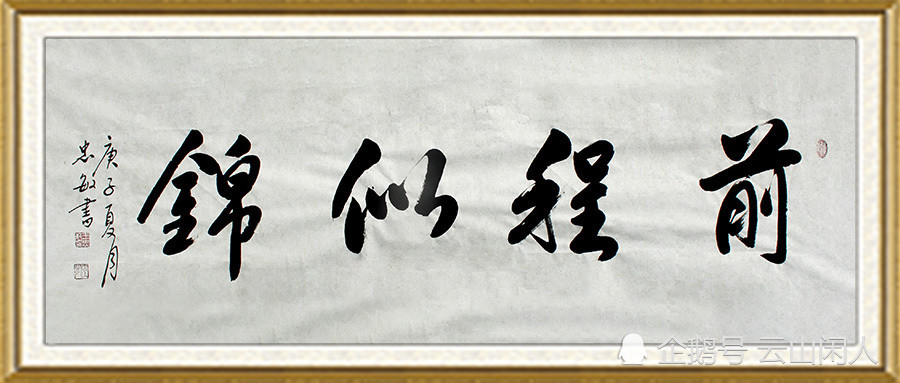 前程似錦
庚子夏月
忠敏書
企鹅号 云山闲人